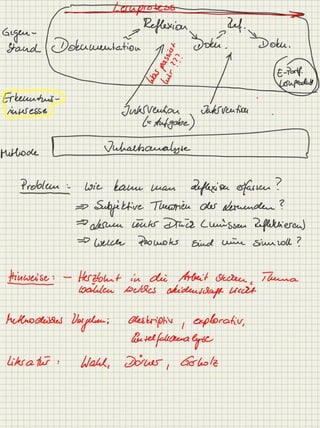 Lernprozess
Reflexion
Ref.
Gegen-
stand
Dokumentation
Doku.
Doku.
was passiert
hier ???
E-Portf.
Lernprodukt
Erkenntnis-
interesse
Intervention
(= Aufgabe)
Intervention
Methode
Inhaltsanalyse
Problem: wie kann man Reflexion erfassen?
⇒ Subjektive Theorien der Lernenden?
⇒ unter Druck (müssen reflektieren)
⇒ welche Prompts sind wann sinnvoll?
Hinweise: - Herzblut in die Arbeit stecken, Thema
wählen welches leidenschaft weckt
Methodisches Vorgehen: deskriptiv, explorativ,
Einzelfallanalyse
Literatur: Wahl, Dörner,